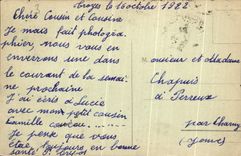 Troyes le 16 octobre 1922
Chère Cousin et Cousine
Je mais fait photogra
phier, nous vous en
enverrons une dans
le courant de la semai
ne prochaine
J'ai écris à Lucie
avec mon petit cousin
Camille
Je pense que vous
êtes toujours en bonne
santé
Monsieur et Madame
Chapuis
à Perreux
par Charny
(Yonne)